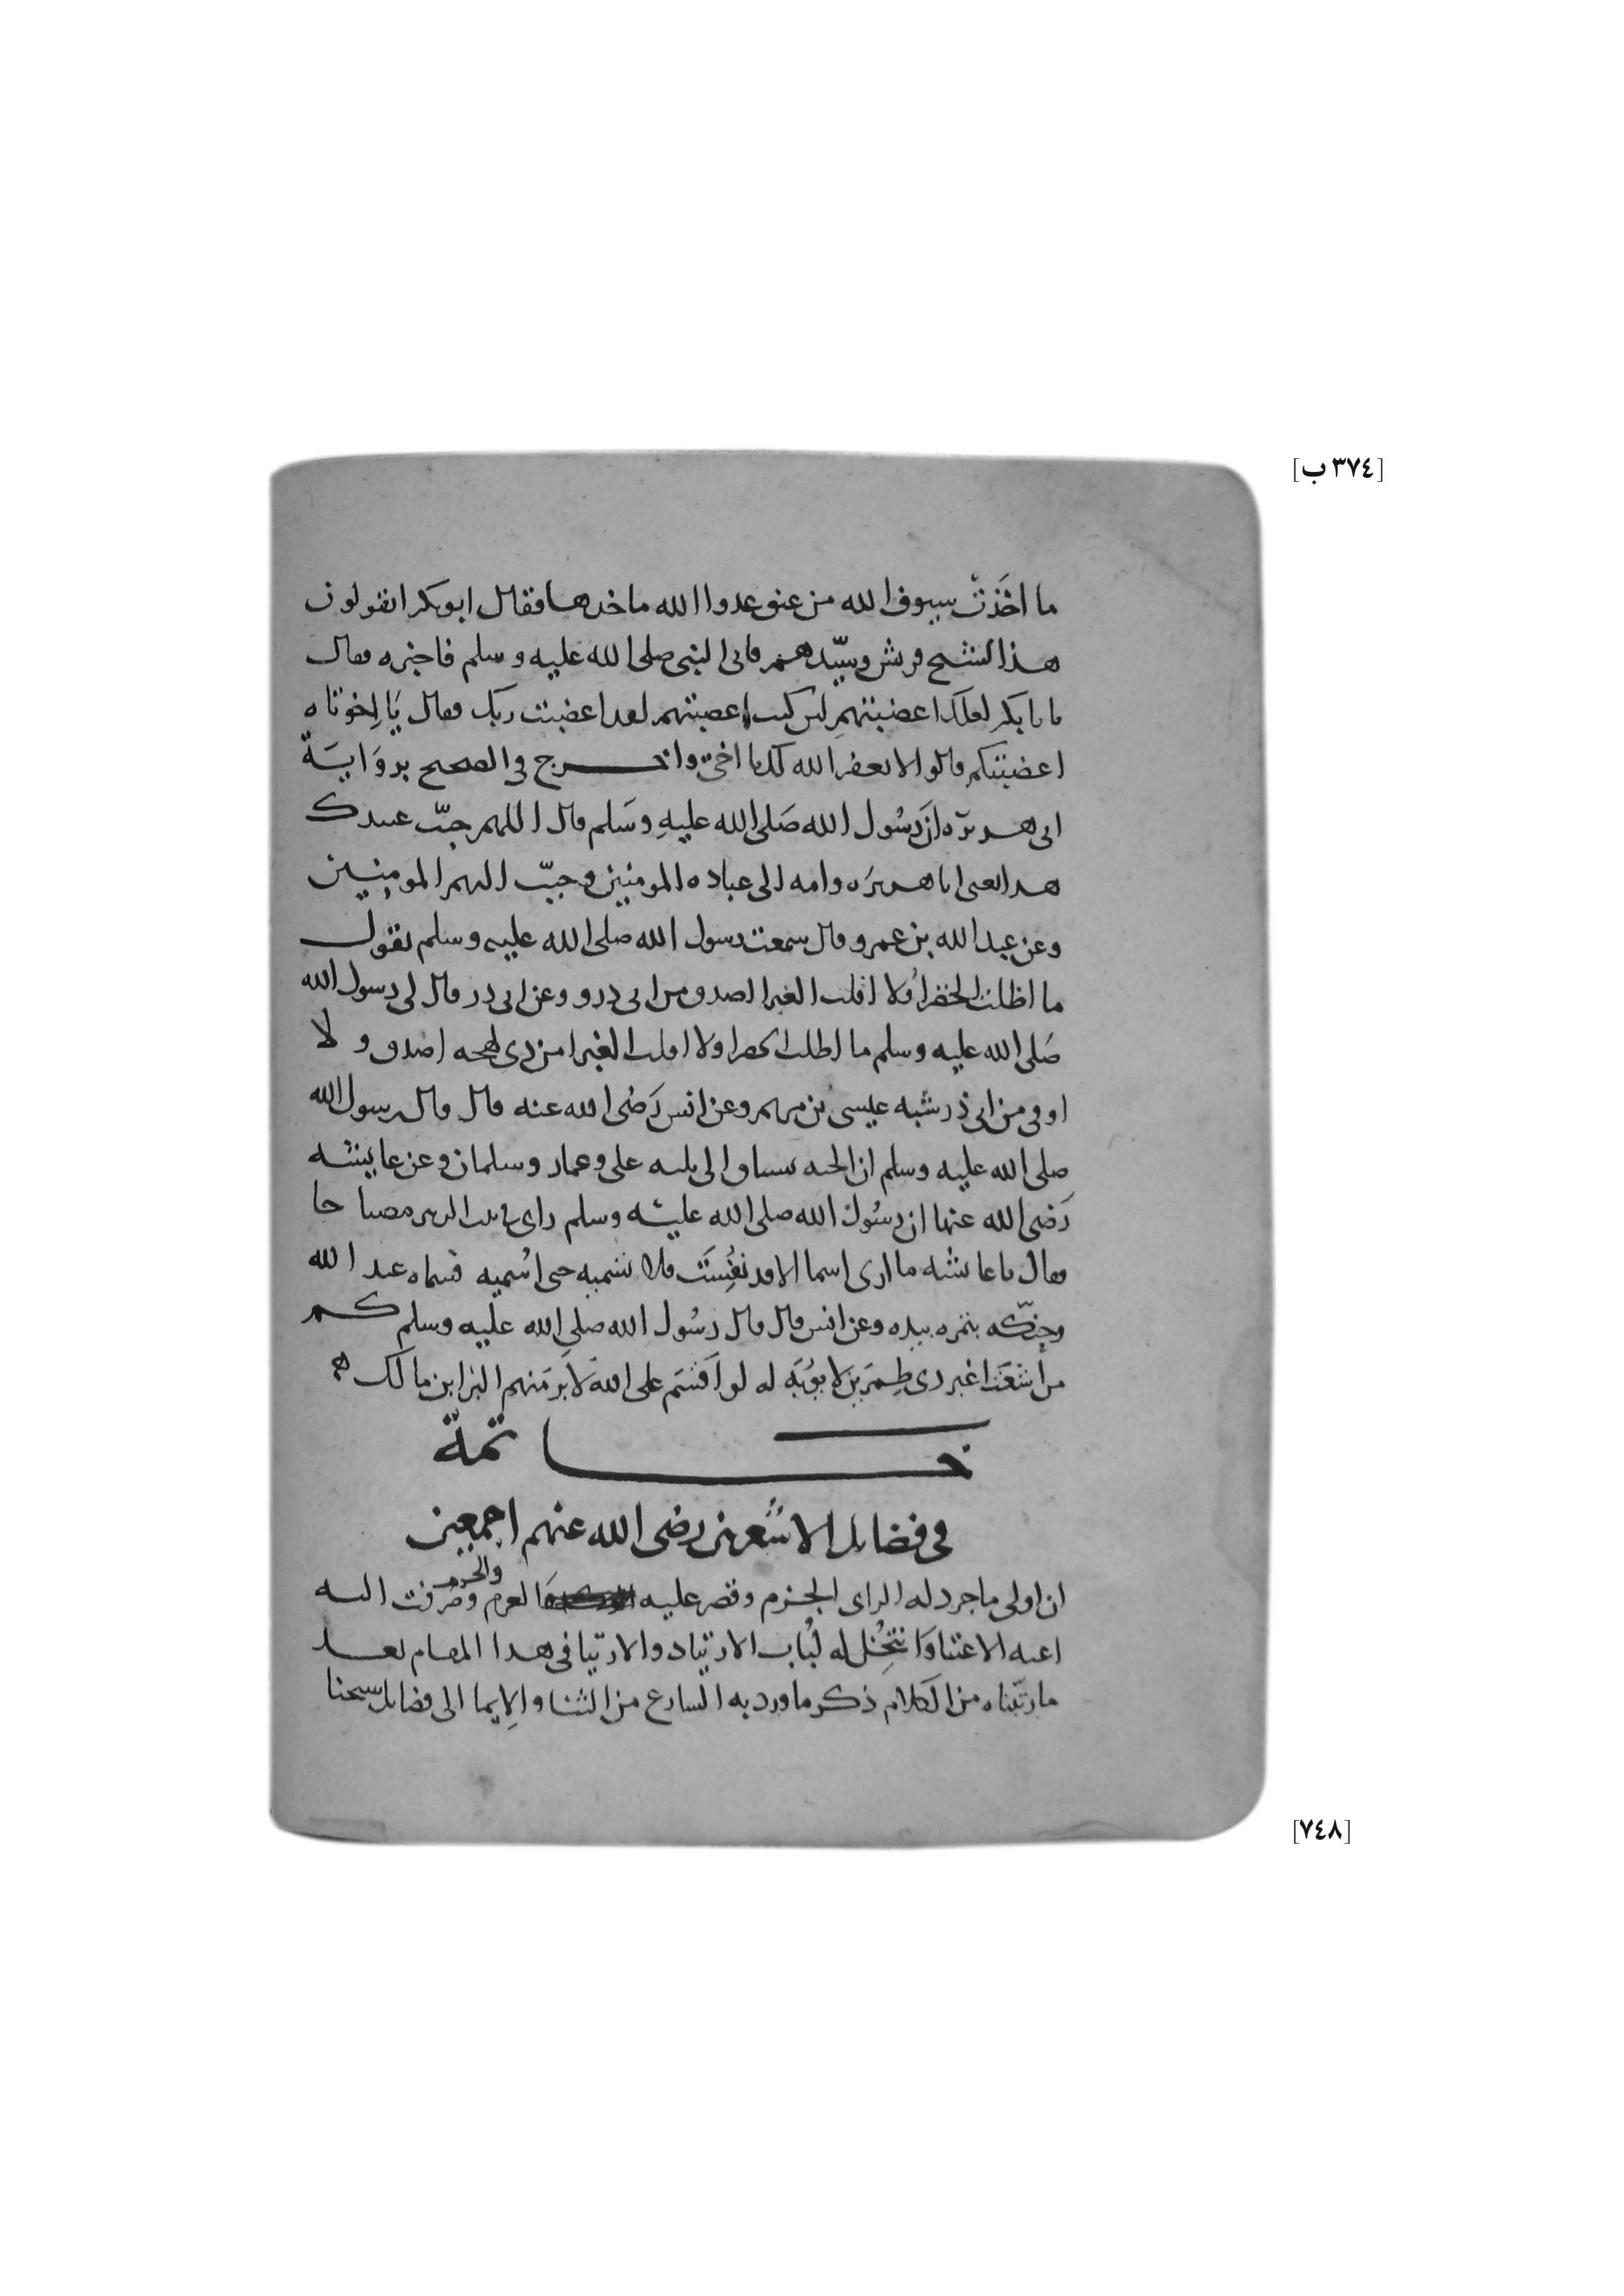 [٣٧٤ ب]
ما اخَذَتْ سيوف الله من عنق عدوا الله ماخدها فقال ابو بكر اتقولون
هذا لشيخ قريش وسيّدهم فاتى النبي صلى الله عليه وسلم فاخبره فقال
يا با بكر لعلك اغضبتهم لئن كنت اغضبتهم لقد اغضبت ربك فقال يَا اِخوتاه
اغضبتكم قالوا لا يغفر الله لك يا اخى واخرج في الصحيح بروَايَة
ابى هريرَه اَن رسُول الله صَلى الله عليهِ وسَلم قال اللهم حبّب عبيدك
هدا يعنى ابا هريرَه وامه الى عباده المومنين وحبّب اليهم المومنين
وعن عبد الله بن عمرو قال سمعت رسول الله صلى الله عليه وسلم يقول
ما اظلت الخضرا ولا اقلت الغبرا اصدق من ابى در و وعن ابى در قال لى رسول الله
صَلى الله عليه وسلم ما اظلت الخضرا ولا اقلت الغبرا من دى لهجه اصدق ولا
اوفى من ابى ذر شبه عيسى بن مريم وعن انس رَضى الله عنه قال قال رسول الله
صلى الله عليه وسلم ان الجنه تشتاق الى ثلثه على وعمار وسلمان وعن عايشه
رَضى الله عنها ان رسُول الله صلى الله عليه وسلم راى في بيت الزبير مصباحا
فقال يا عائشه ما ارى اسما الا قد نفُسِتَت فلا تسميه حتى اُسميه فسماه عبد الله
وحنّكه بتمره بيده وعن انس قال قال رسُول الله صلى الله عليه وسلم كم
من أشعَث اغبر دى طِمرَين لا يُوبَه له لو اَقسَم على الله لاَبرّ منهم البرا بن مالك
خاتمة
في فضايل الاشعرين رضى الله عنهم اجمعين
ان اولى ما جرد له الراى الجزم وقصر عليه العزم والحزم وصُرفت اليه
اعنه الاعتنا وَانتُخِل له لُباب الارتياد والارتيا في هدا المقام بعد
ما رتّبناه من الكلام ذكر ما ورد به الشارع من الثنا والاِيما الى فضايل شيخنا
[٧٤٨]